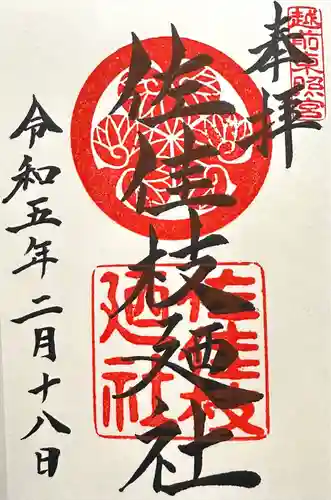 奉拝
越前東照宮
佐佳枝廼社
佐佳枝
廼社
令和五年二月十八日